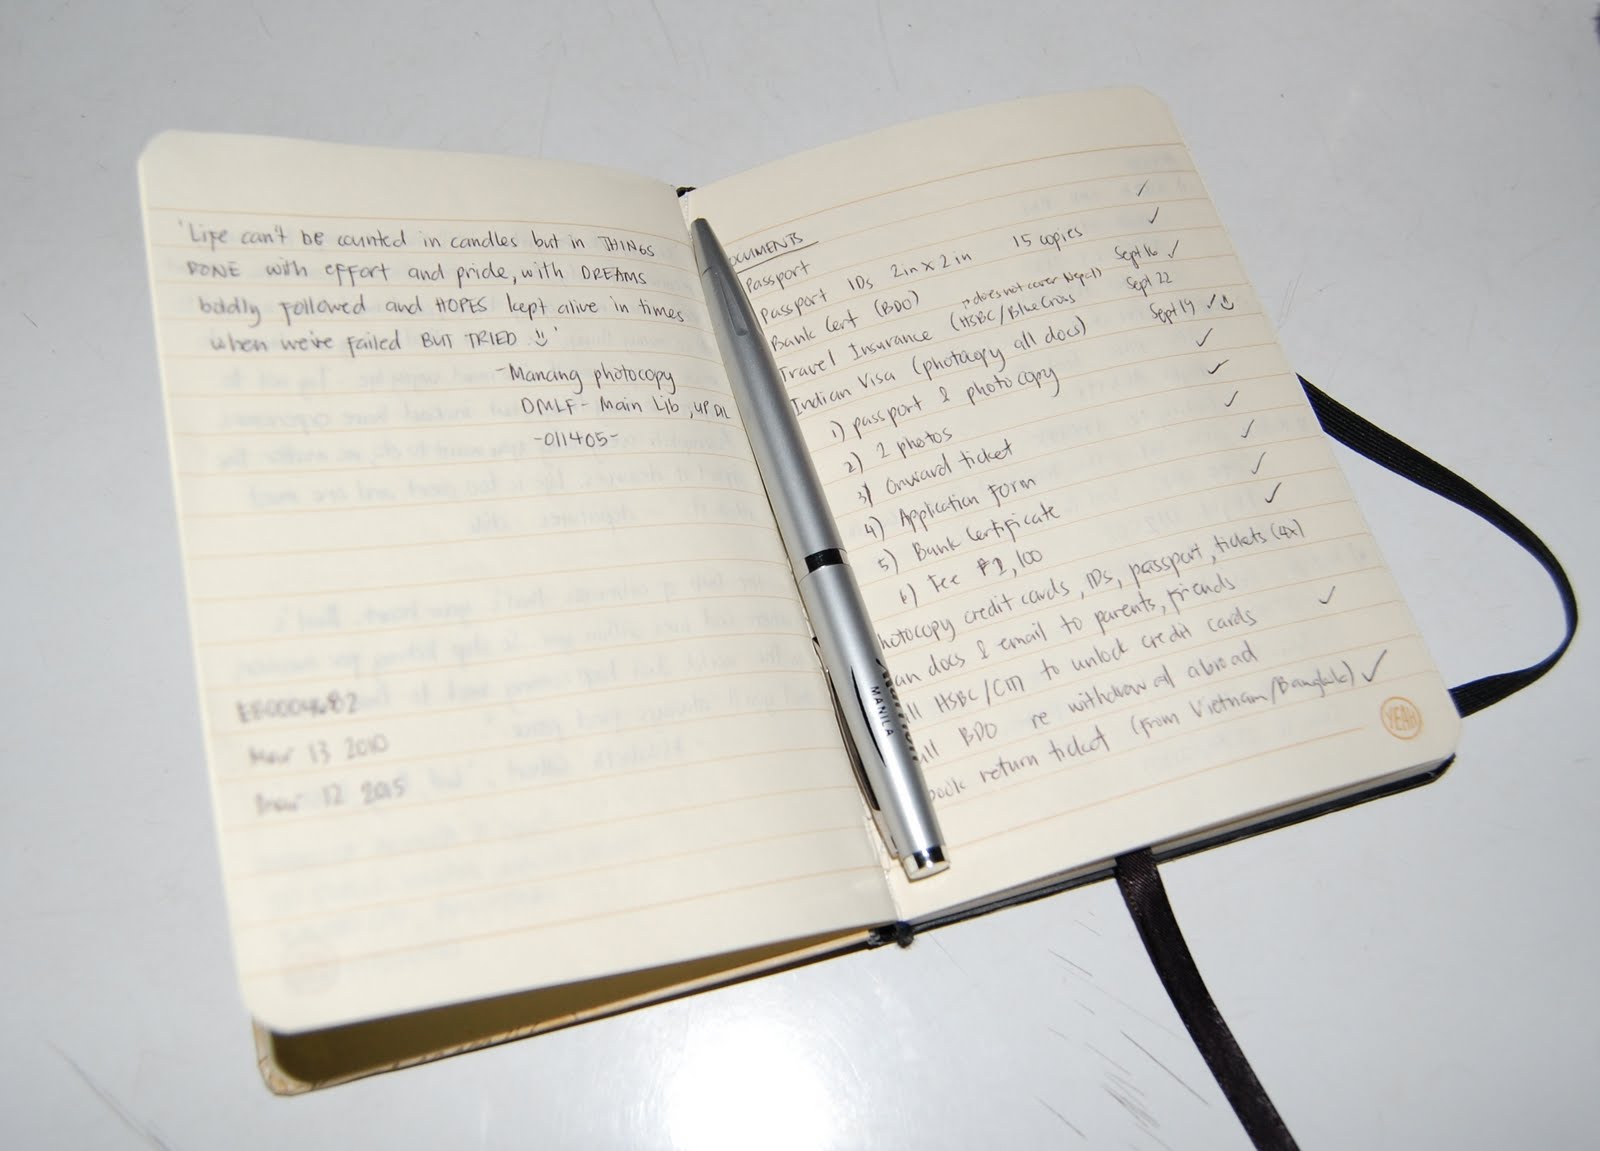 'Life can't be counted in candles but in THINGS
DONE with effort and pride, with DREAMS
boldly followed and HOPES kept alive in times
when we've failed BUT TRIED.'
- Mancing photocopy
DMLF - Main Lib, UP DIL
-011405-
Mar 13 2010
12 2015
OCUMENTS
Passport
Passport IDs 2in x 2in 15 copies
Bank Cert (BDO) Sept 16
does not cover Nepal)
Travel Insurance (HSBC/Blue Cross Sept 22
Indian Visa (photocopy all docs) Sept 19
1) passport & photocopy
2) 2 photos
3) Onward ticket
4) Application Form
5) Bank Certificate
6) Fee ,100
hotocopy credit cards, IDs, passport, tickets (4x)
an docs & email to parents, friends
ll HSBC/Citi to unlock credit cards
ll BDO re withdrawal abroad
book return ticket (from Vietnam/Bangkok)
YEAH
MANILA